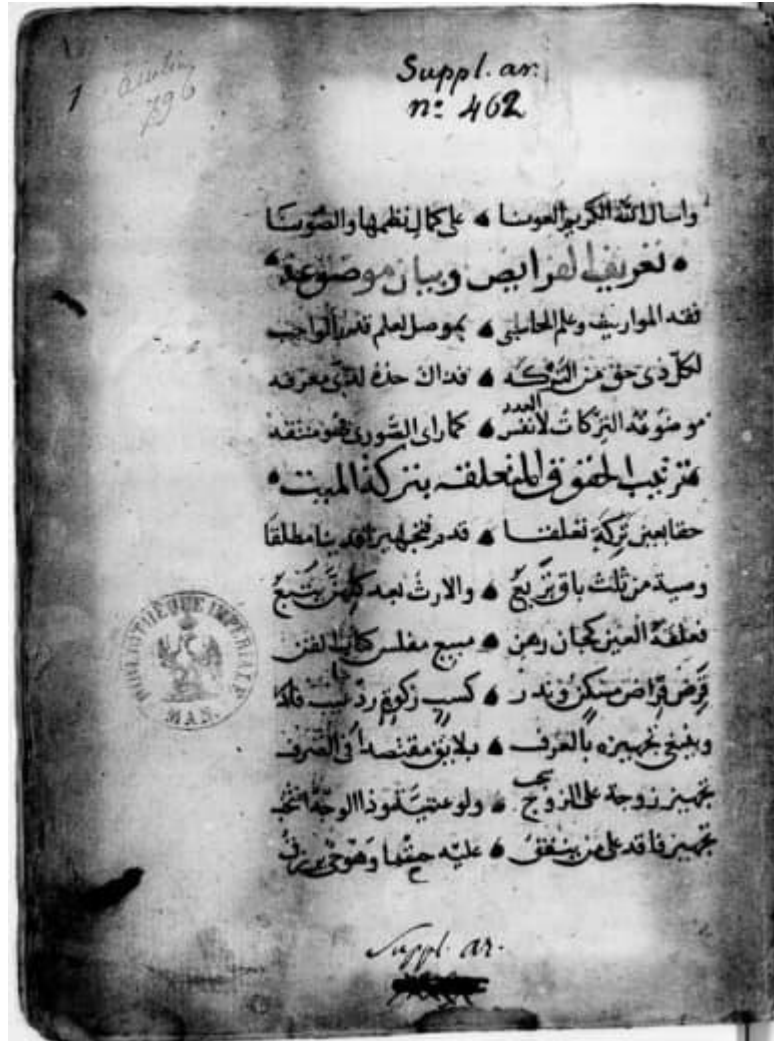 1
796
Suppl. ar.
nº 462
واسال الله الكريم العونا ۞ على كمال نظمها والصونا
تعريف الفرايض وبيان موضوعه
فقه المواريث وعلم الحاسب ۞ بموصل لعلم قدر الواجب
لكل ذى حق من التركه ۞ فذاك حده لذى معرفه
موضوعه التركات لا العدد ۞ كما راى الصورى فهو منتقد
ترتيب الحقوق المتعلقه بتركة الميت
حقا بعين تركة تعلقا ۞ قدم فتجهيزا فدينا مطلقا
وصية من ثلث باق ۞ والارث بعد كلهن يتبع
فعلقه العين كجان رهن ۞ مبيع مفلس كتاب
قرض قراض سكن ونذر ۞ كسب زكوة رد
وينبغى تجهيزه بالعرف ۞ بلايق مقتصدا فى الصرف
تجهيز زوجة على الزوج يجب ۞ ولو غنية
تجهيز فاقد على من ينفق ۞ عليه حتما وهو حى يرزق
BIBLIOTHÈQUE IMPÉRIALE
MAN.
Suppl. ar.